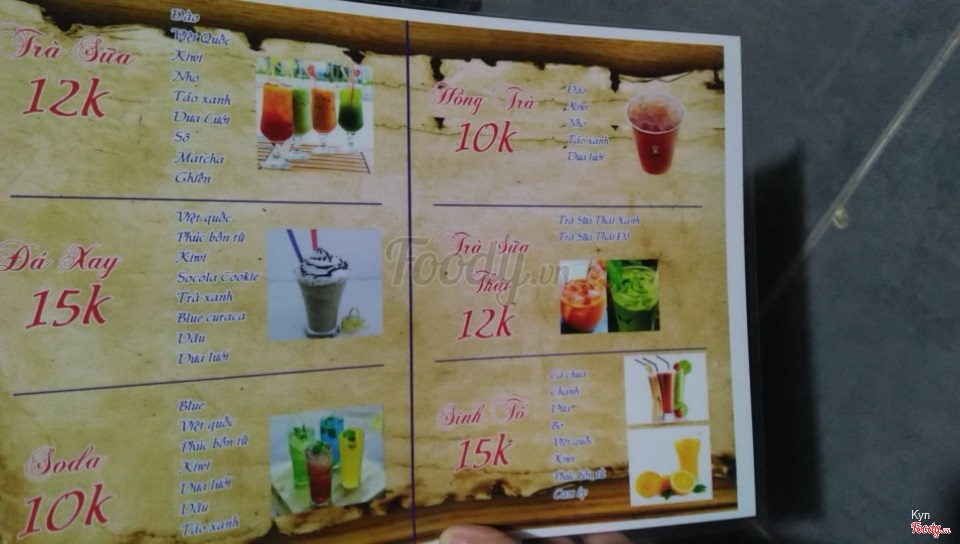 Trà Sữa
12k
Đào
Việt Quốc
Kiwi
Nho
Táo xanh
Dưa Lưới
Sô
Matcha
Ghiền
Đá Xay
15k
Việt quốc
Phúc bồn tử
Kiwi
Socola Cookie
Trà xanh
Blue curaca
Dâu
Dưa lưới
Soda
10k
Blue
Việt quốc
Phúc bồn tử
Kiwi
Dưa lưới
Dâu
Táo xanh
Hồng Trà
10k
Đào
Kiwi
Nho
Táo xanh
Dưa lưới
Trà Sữa
Thái
12k
Trà Sữa Thái Xanh
Trà Sữa Thái Đỏ
Sinh Tố
15k
Cà chua
Chanh
Dưa
Bơ
Việt quốc
Kiwi
Phúc bồn tử
Cam ép
Foody.vn
Kyn
Foody.vn